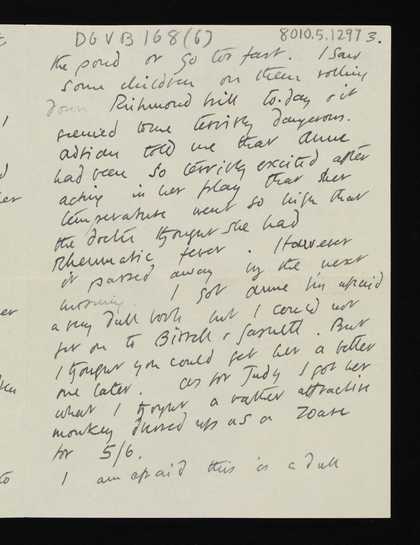 DGVB 168 (6)
8010.5.1297 3.
the pond or go too fast. I saw
some children on them rolling
down Richmond hill to-day & it
seemed to me terribly dangerous.
Adrian told me that Anne
had been so terribly excited after
acting in her play that her
temperature went so high that
the doctor thought she had
Rheumatic fever. However
it passed away by the next
morning. I got Anne I'm afraid
a very dull book but I could not
get on to Birrell & Garnett. But
I thought you could get her a better
one later. As for Judy I got her
what I thought a rather attractive
monkey dressed up as a
for 5/6.
I am afraid this is a dull